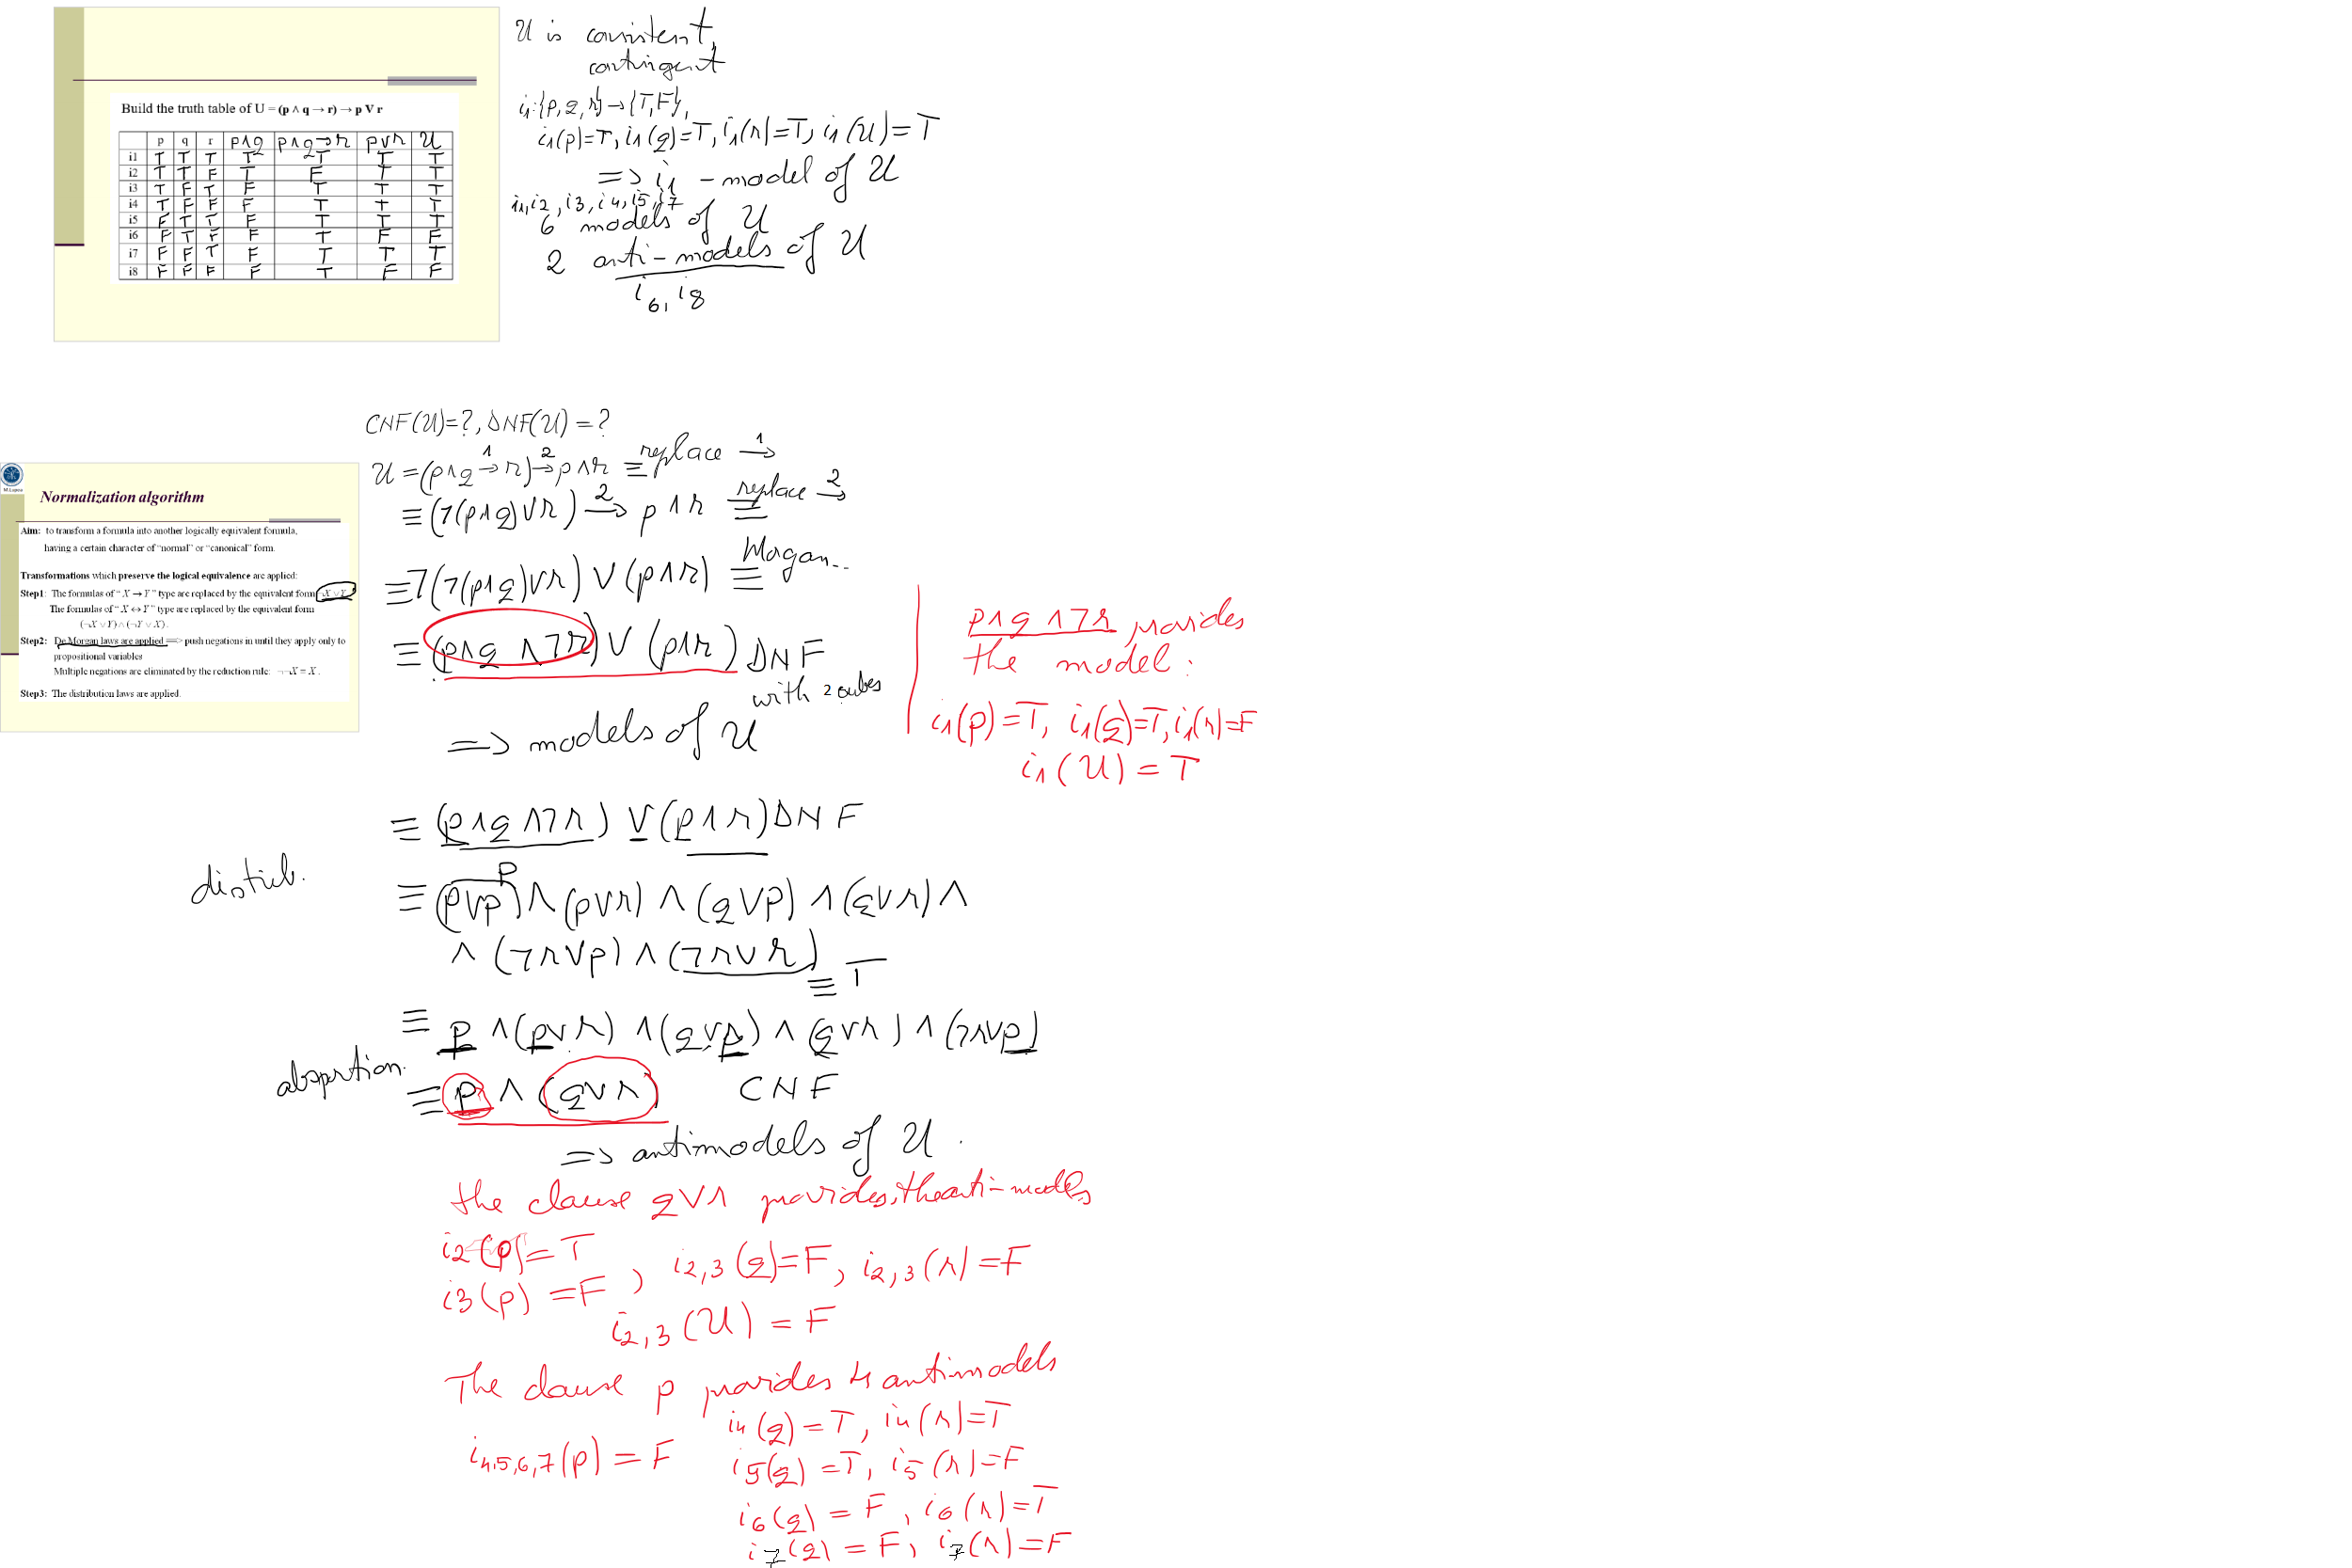 Build the truth table of U = (p ∧ q → r) → p V r
p q r p∧q p∧q→r p∨r U
i1 T T T T T T T
i2 T T F T F T T
i3 T F T F T T T
i4 T F F F T T T
i5 F T T F T T T
i6 F T F F T F F
i7 F F T F T T T
i8 F F F F T F F
U is consistent,
contingent
i1:{p,q,r}→{T,F},
i1(p)=T, i1(q)=T, i1(r)=T, i1(U)=T
=> i1 - model of U
i1,i2,i3,i4,i5,i7
6 models of U
2 anti-models of U
i6, i8
CNF(U)=?, DNF(U)=?
U=(p∧q →1 r) →2 p∧r ≡ replace →1
≡(¬(p∧q)∨r) →2 p∧r ≡ replace →2
≡¬(¬(p∧q)∨r) ∨ (p∧r) ≡ Morgan..
≡(p∧q ∧¬r) ∨ (p∧r) DNF
with 2 cubes
=> models of U
M.Lupea
Normalization algorithm
Aim: to transform a formula into another logically equivalent formula,
having a certain character of "normal" or "canonical" form.
Transformations which preserve the logical equivalence are applied:
Step1: The formulas of " X → Y " type are replaced by the equivalent form ¬X ∨ Y.
The formulas of " X ↔ Y " type are replaced by the equivalent form
(¬X ∨ Y) ∧ (¬Y ∨ X).
Step2: De Morgan laws are applied => push negations in until they apply only to
propositional variables
Multiple negations are eliminated by the reduction rule: ¬¬X ≡ X.
Step3: The distribution laws are applied.
p∧q∧¬r provides
the model:
i1(p)=T, i1(q)=T, i1(r)=F
i1(U)=T
≡(p∧q∧¬r) ∨ (p∧r) DNF
distrib.
p
≡(p∨p)∧(p∨r)∧(q∨p)∧(q∨r)∧
∧(¬r∨p)∧(¬r∨r)
≡T
≡ p ∧(p∨r)∧(q∨p)∧(q∨r)∧(¬r∨p)
absportion.
≡ p ∧ (q∨r) CNF
=> antimodels of U.
the clause q∨r provides the anti-models
i2(p)=T
i3(p)=F, i2,3(q)=F, i2,3(r)=F
i2,3(U)=F
The clause p provides 4 antimodels
i4(q)=T, i4(r)=T
i4,5,6,7(p)=F
i5(q)=T, i5(r)=F
i6(q)=F, i6(r)=T
i7(q)=F, i7(r)=F